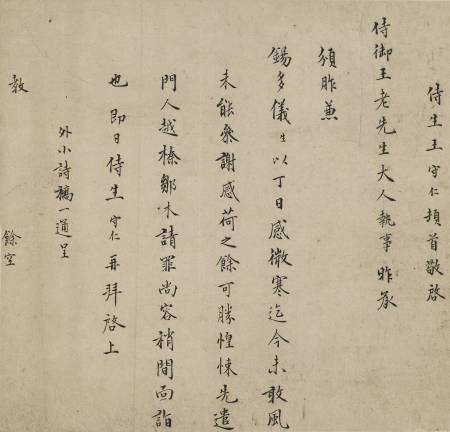 侍生王守仁頓首敬啓
侍御王老先生大人執事昨承
頒胙兼
錫多儀生以丁日感微寒迄今未敢風
未能參謝感荷之餘可勝惶悚先遣
門人越榛鄒木請罪尚容稍間面詣
也即日侍生守仁再拜啓上
外小詩稿一通呈
教
餘空